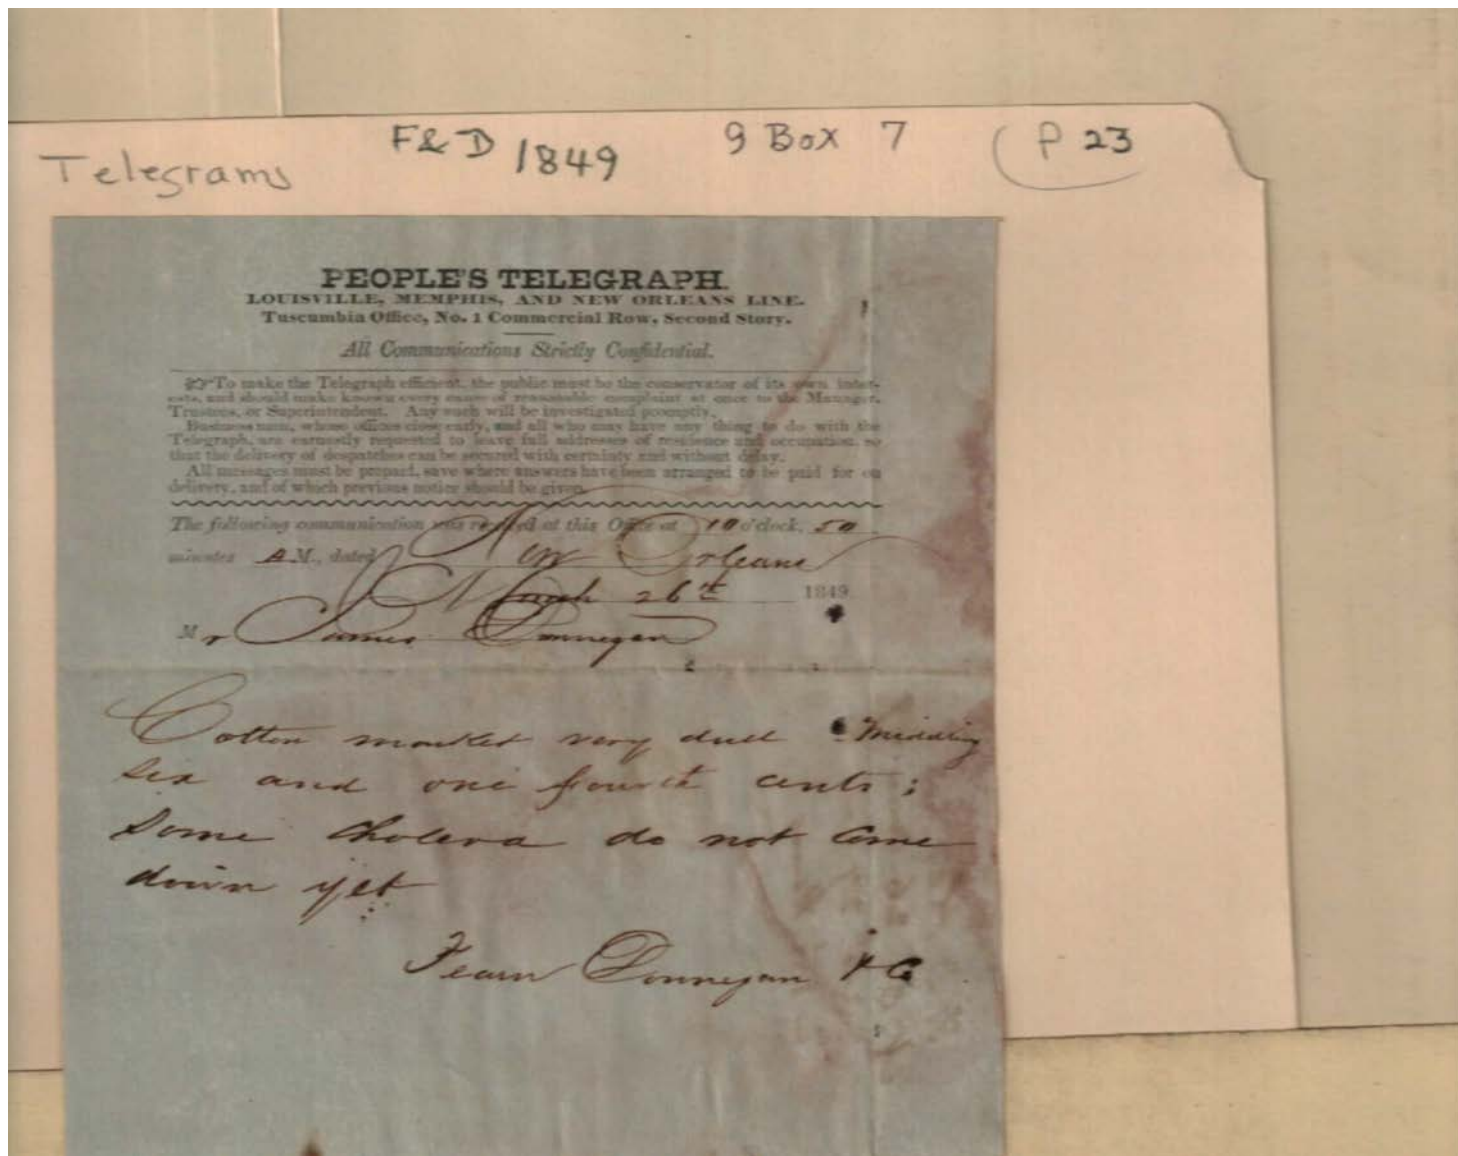 Telegrams F&D 1849 9 Box 7 P 23
PEOPLE'S TELEGRAPH.
LOUISVILLE, MEMPHIS, AND NEW ORLEANS LINE.
Tuscumbia Office, No. 1 Commercial Row, Second Story.
All Communications Strictly Confidential.
☞To make the Telegraph efficient, the public must be the conservator of its own inter-
ests, and should make known every cause of reasonable complaint at once to the Manager,
Trustees, or Superintendent. Any such will be investigated promptly.
Business men, whose offices close early, and all who may have any thing to do with the
Telegraph, are earnestly requested to leave full addresses of residence and occupation, so
that the delivery of despatches can be secured with certainty and without delay.
All messages must be prepaid, save where answers have been arranged to be paid for on
delivery, and of which previous notice should be given.
The following communication was received at this Office at 10 o'clock, 50
minutes A.M., dated New Orleans
March 26th 1849.
Mr James Donnegan
Cotton market very dull Middling
six and one fourth cents;
Some Cholera do not Come
down yet
Fearn Donnegan & Co